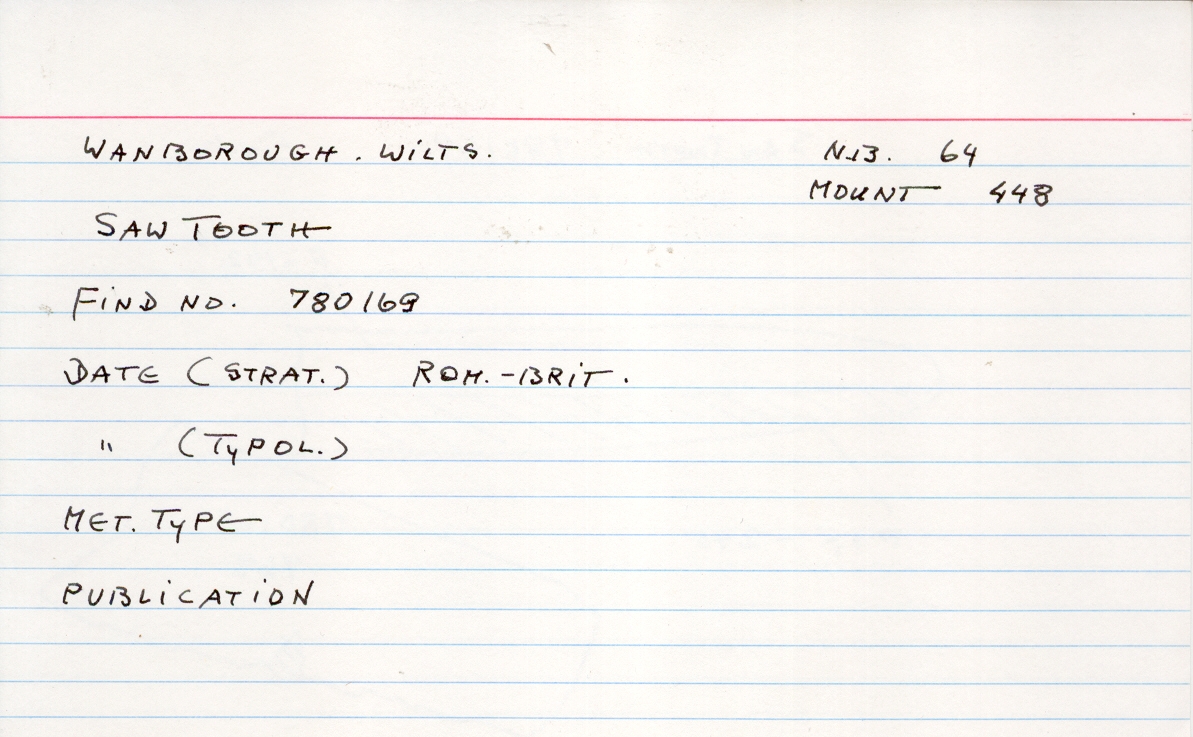 WANBOROUGH. WILTS.
N.B. 64
MOUNT 448
SAW TOOTH
FIND NO. 780169
DATE (STRAT.) ROM.-BRIT.
" (TYPOL.)
MET. TYPE
PUBLICATION